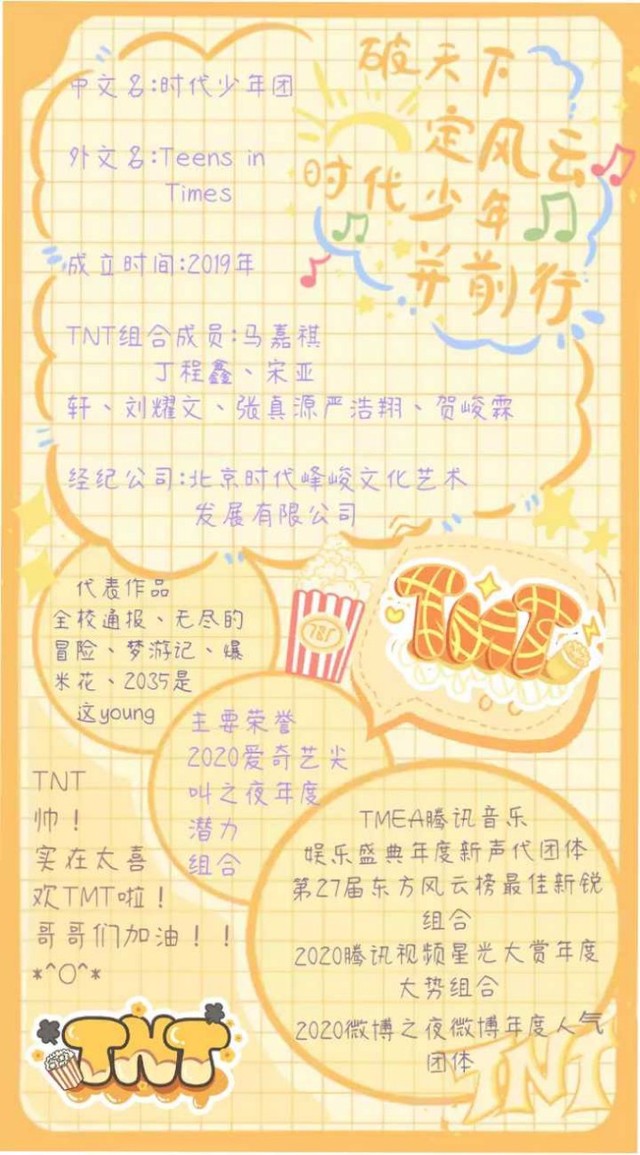 破天下
定风云
时代少年
并前行
中文名:时代少年团
外文名:Teens in
Times
成立时间:2019年
TNT组合成员:马嘉祺
丁程鑫、宋亚
轩、刘耀文、张真源严浩翔、贺峻霖
经纪公司:北京时代峰峻文化艺术
发展有限公司
代表作品
全校通报、无尽的
冒险、梦游记、爆
米花、2035是
这young
TNT
TNT
主要荣誉
2020爱奇艺尖
叫之夜年度
潜力
组合
TNT
帅！
实在太喜
欢TMT啦！
哥哥们加油！！
*^O^*
TMEA腾讯音乐
娱乐盛典年度新声代团体
第27届东方风云榜最佳新锐
组合
2020腾讯视频星光大赏年度
大势组合
2020微博之夜微博年度人气
团体
TNT
TNT